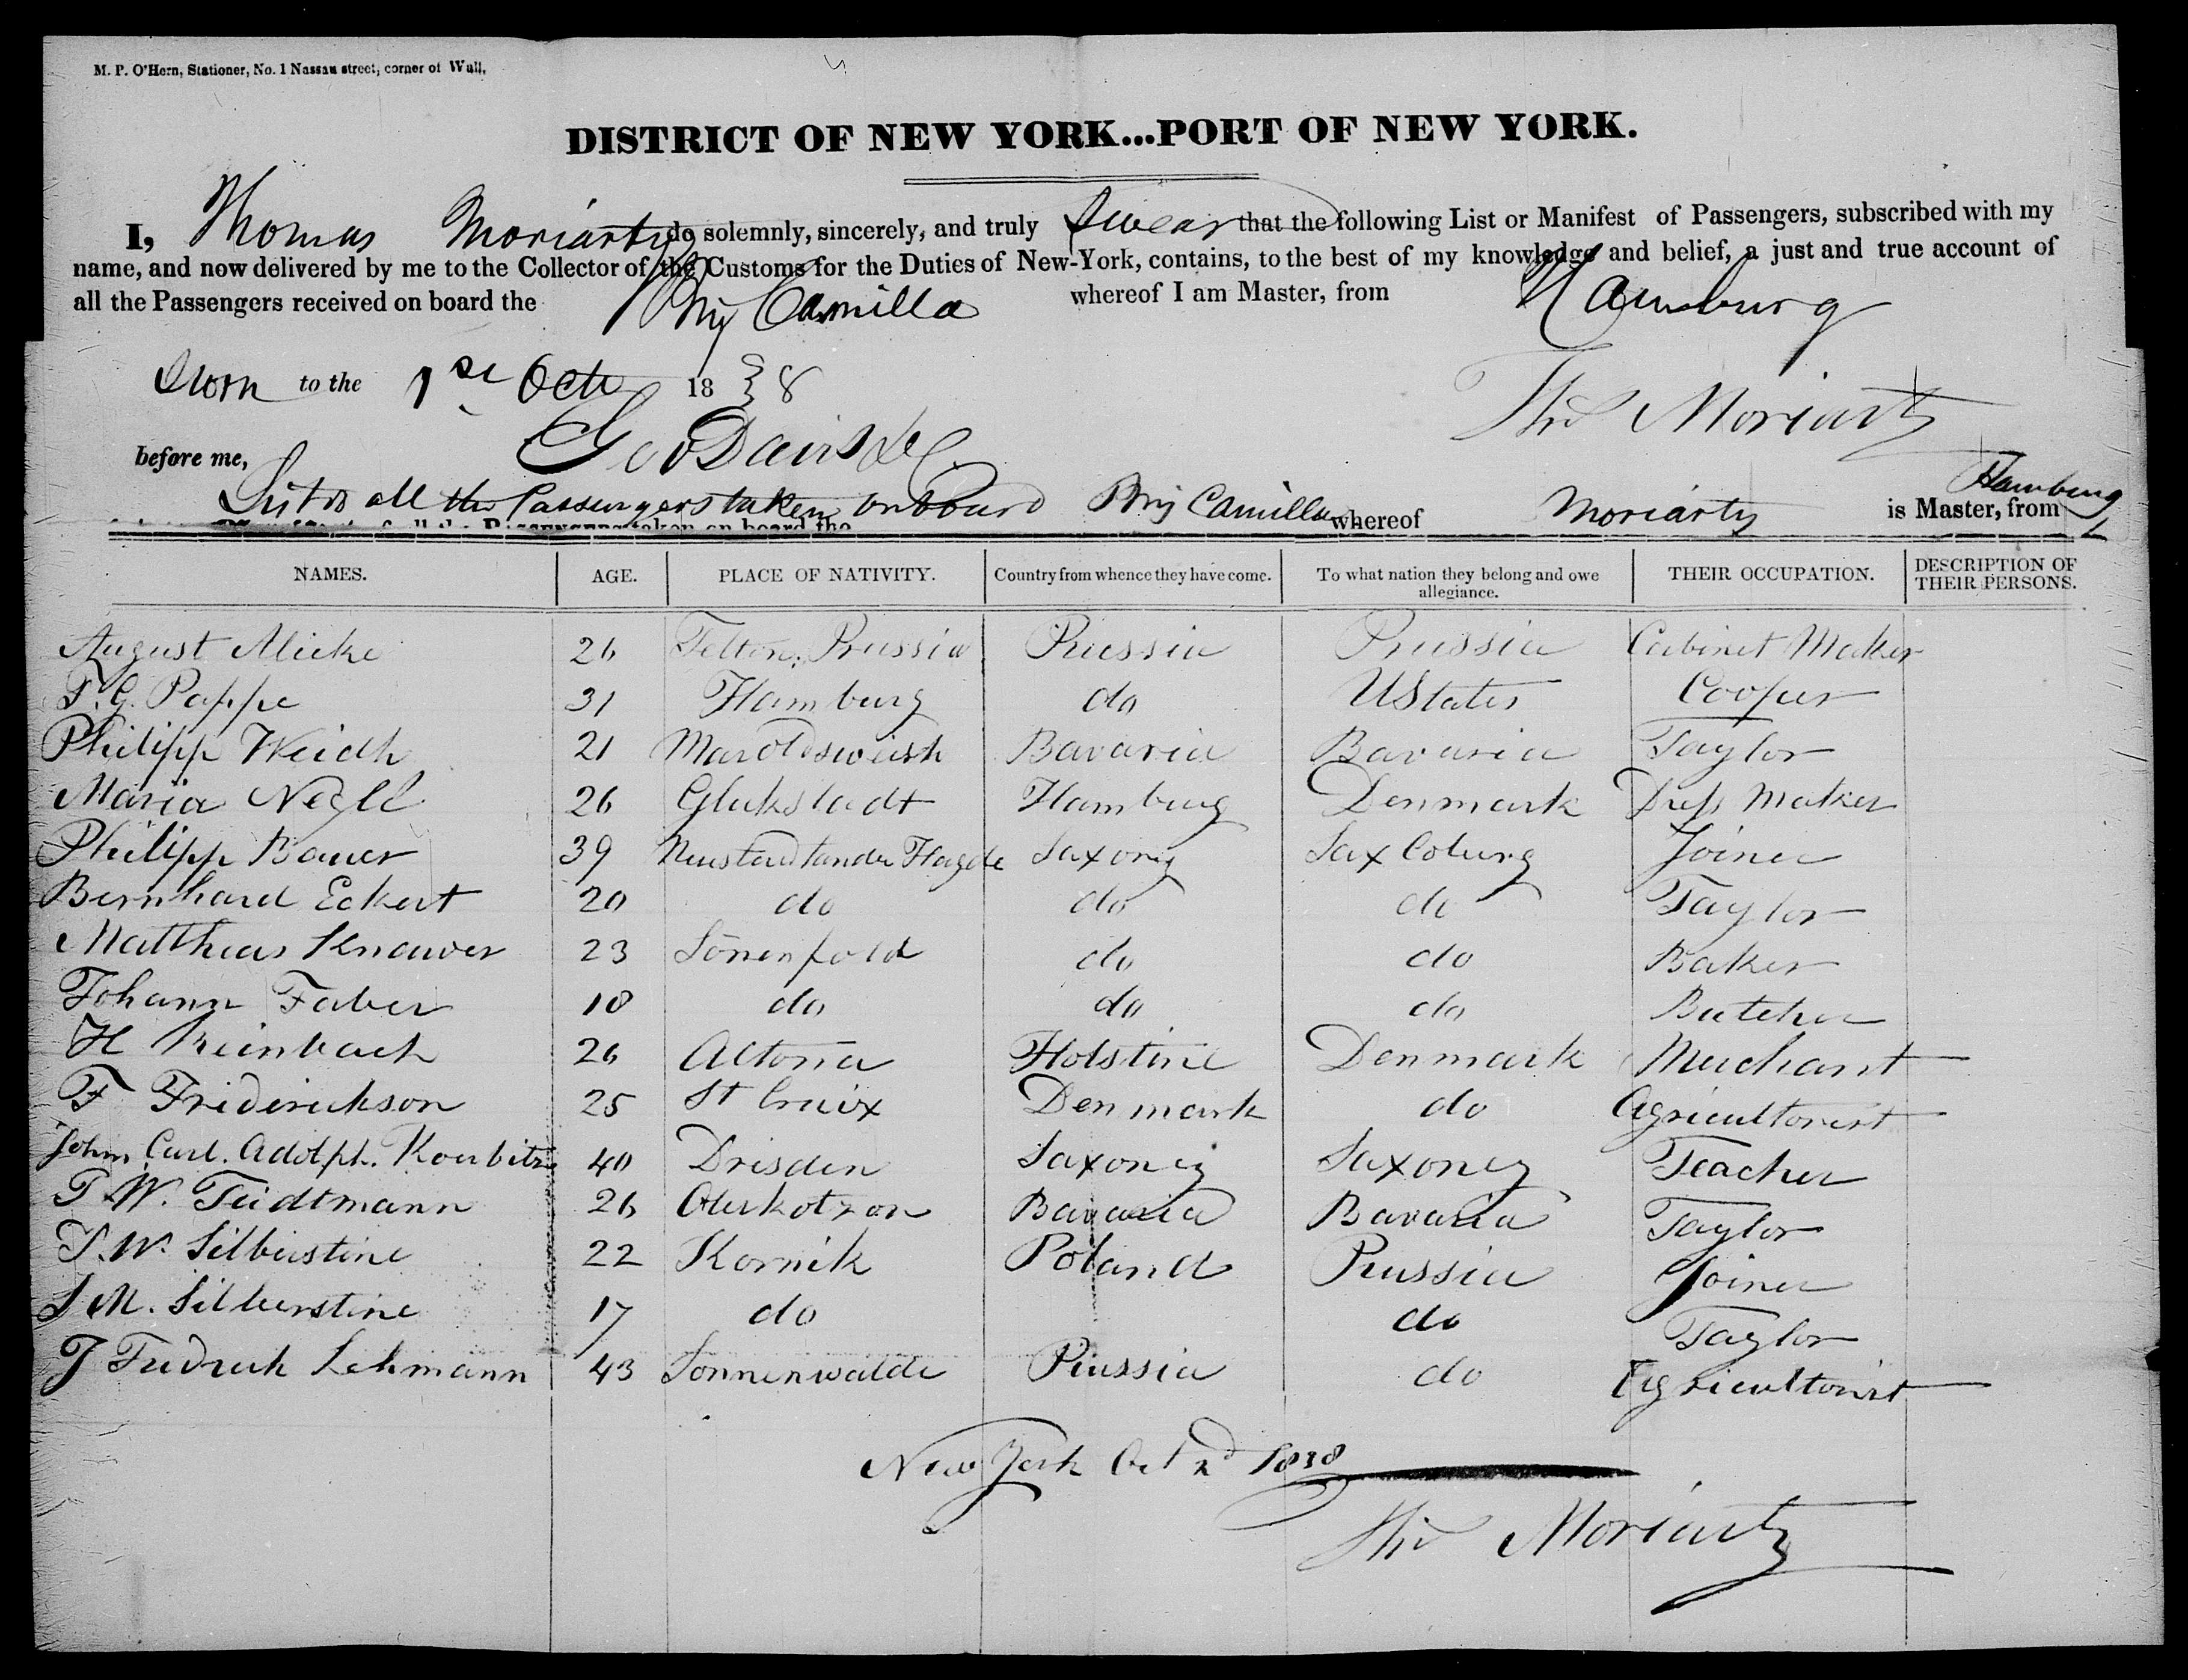 M. P. O'Hern, Stationer, No. 1 Nassau street, corner of Wall,
DISTRICT OF NEW YORK...PORT OF NEW YORK.
I, Thomas Moriarty do solemnly, sincerely, and truly Swear that the following List or Manifest of Passengers, subscribed with my
name, and now delivered by me to the Collector of the Customs for the Duties of New-York, contains, to the best of my knowledge and belief, a just and true account of
all the Passengers received on board the Brig Camilla whereof I am Master, from Hamburg
Sworn to the 1st Octr 1838
Thos Moriarty
before me, Geo Davis
List of all the Passengers taken on board Brig Camilla whereof Moriarty is Master, from Hamburg
NAMES. AGE. PLACE OF NATIVITY. Country from whence they have come. To what nation they belong and owe allegiance. THEIR OCCUPATION. DESCRIPTION OF THEIR PERSONS.
August Micke 26 Telton, Prussia Prussia Prussia Cabinet Maker
F. G. Pappe 31 Hamburg do UStates Cooper
Philipp Weidh 21 Maroldsweish Bavaria Bavaria Taylor
Maria Negll 26 Glukstadt Hamburg Denmark Dress Maker
Philipp Bauer 39 Saxony Sax Coburg Joiner
Bernhard Eckert 20 do do do Taylor
Matthias Knauer 23 Sonenfold do do Baker
Johann Faber 18 do do do Butcher
H Reinbach 26 Altona Holstine Denmark Merchant
F Friderickson 25 St Croix Denmark do Agricultorist
John Carl. Adolph. Koerbitz 40 Drisden Saxony Saxony Teacher
T. W. Teidtmann 26 Oberkotzon Bavaria Bavaria Taylor
S. W. Silberstine 22 Kornik Poland Prussia Joiner
S M. Silberstine 17 do do Taylor
J Fredrich Lehmann 43 Sonnenwalde Prussia do Agricultorist
New York Oct 2d 1838
Thos Moriarty